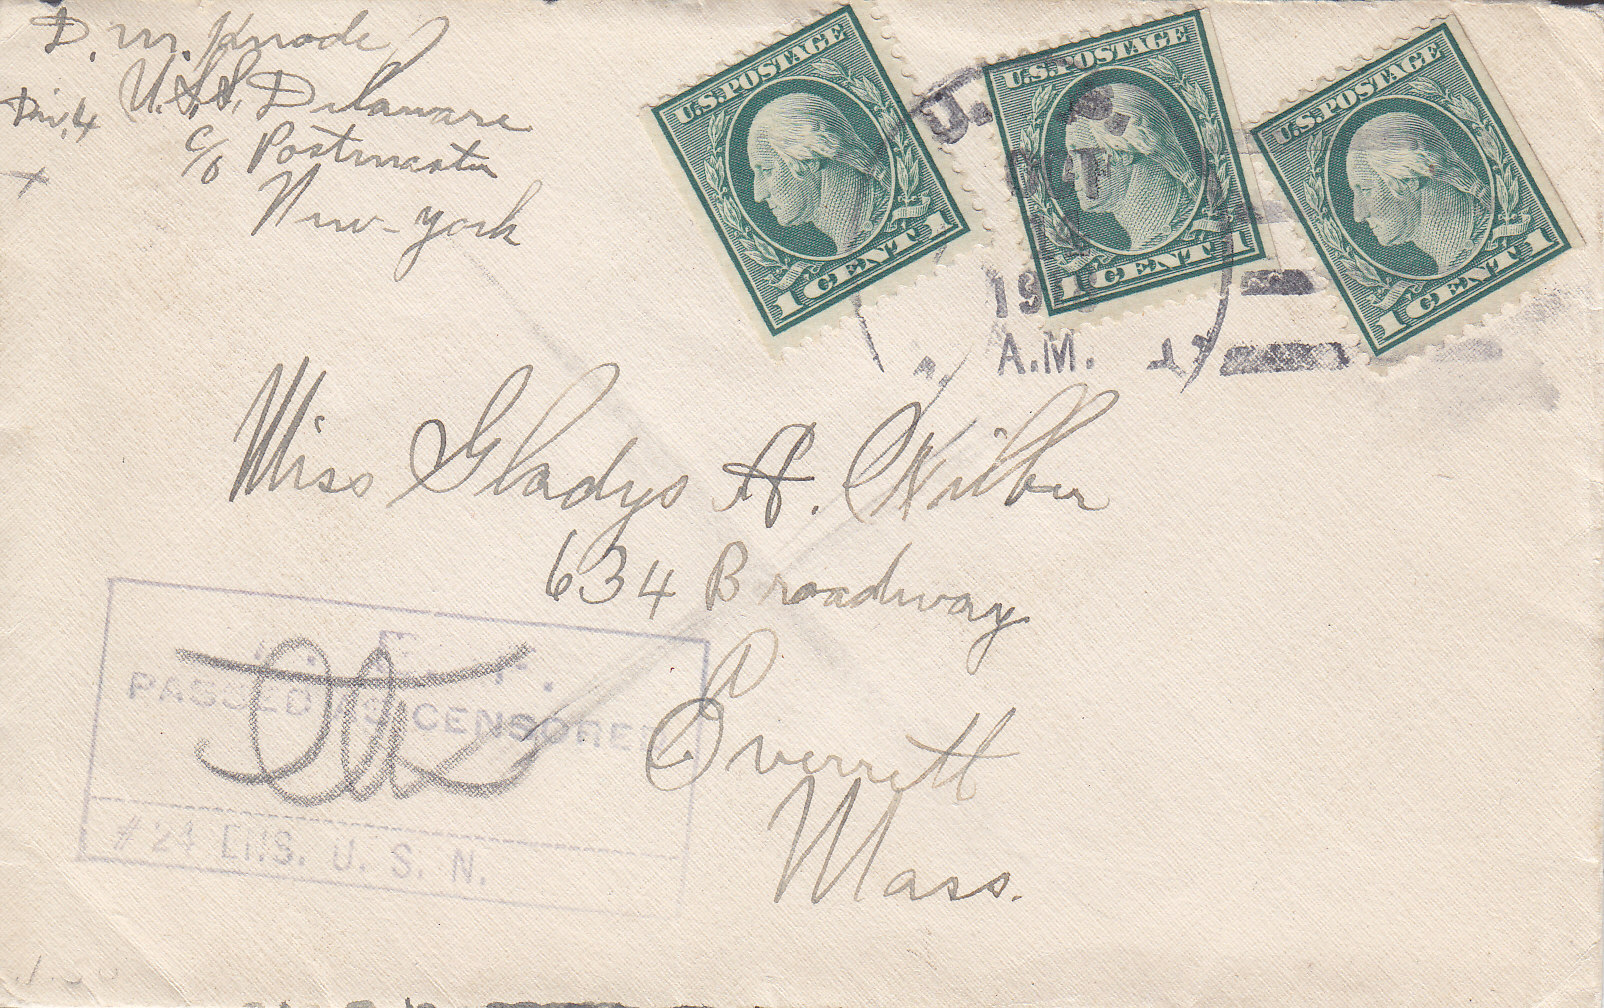 D. M. Knode
U.S.S. Delaware
Div. 4
c/o Postmaster
New York
U.S. POSTAGE
1 CENT 1
U.S. POSTAGE
1 CENT 1
U.S. POSTAGE
1 CENT 1
U. S.
OCT
14
191
A.M.
Miss Gladys A. Wilber
634 Broadway
Everett
Mass.
PASSED AS CENSORED
#24 ENS. U. S. N.